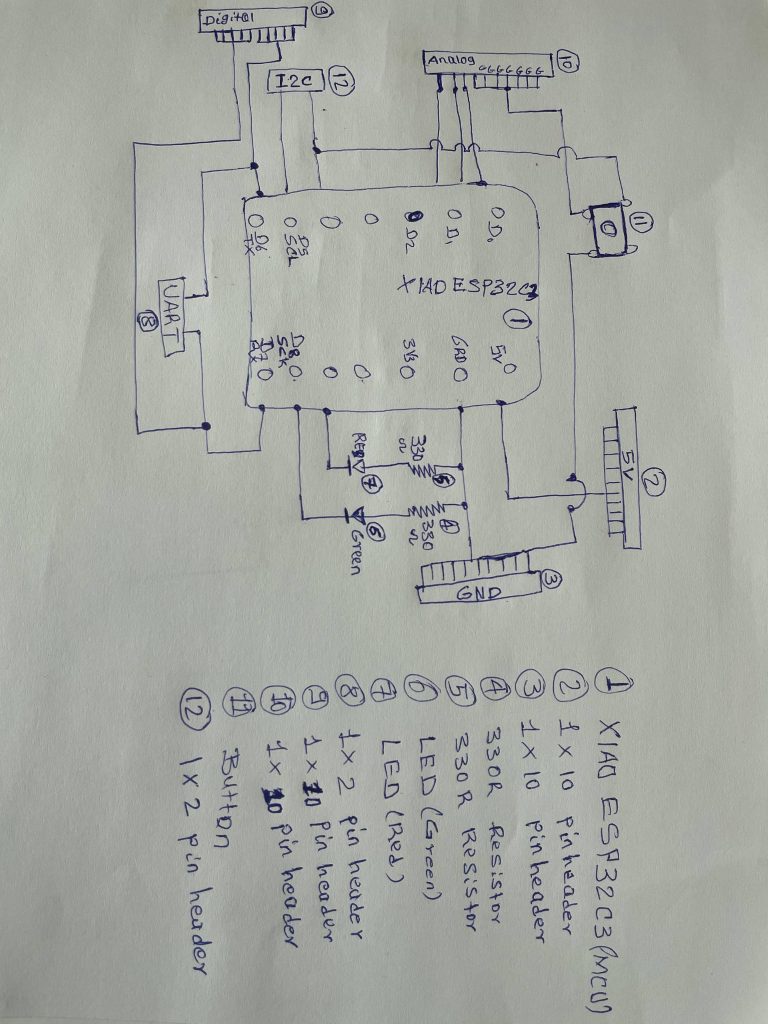 Digital
9
I2C
12
Analog
G G G G G G G
10
11
D6
TX
D5
SCL
D2
D1
D0
XIAO ESP32C3
1
UART
8
D7
RX
D8
SCK
3V3
GRD
5V
5V
2
Red
7
330
Ω
5
Green
6
330
Ω
4
GND
3
1 XIAO ESP32C3 (MCU)
2 1 x 10 pinheader
3 1 x 10 pinheader
4 330R Resistor
5 330R Resistor
6 LED (Green)
7 LED (Red)
8 1 x 2 pin header
9 1 x 10 pin header
10 1 x 10 pin header
11 Button
12 1 x 2 pin header